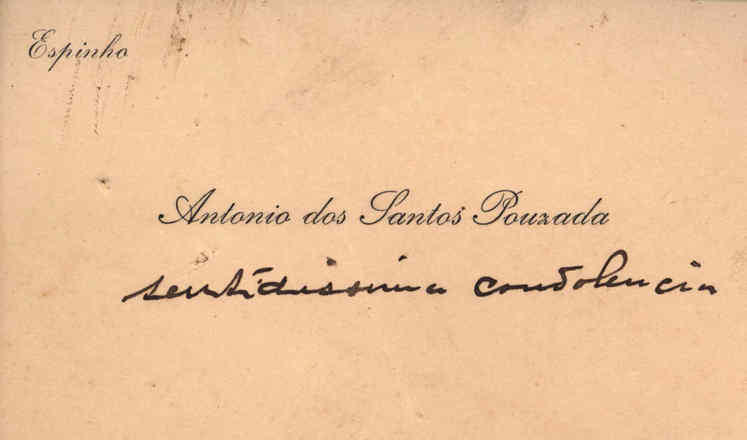 Espinho
Antonio dos Santos Pouzada
sentidissima condolencia